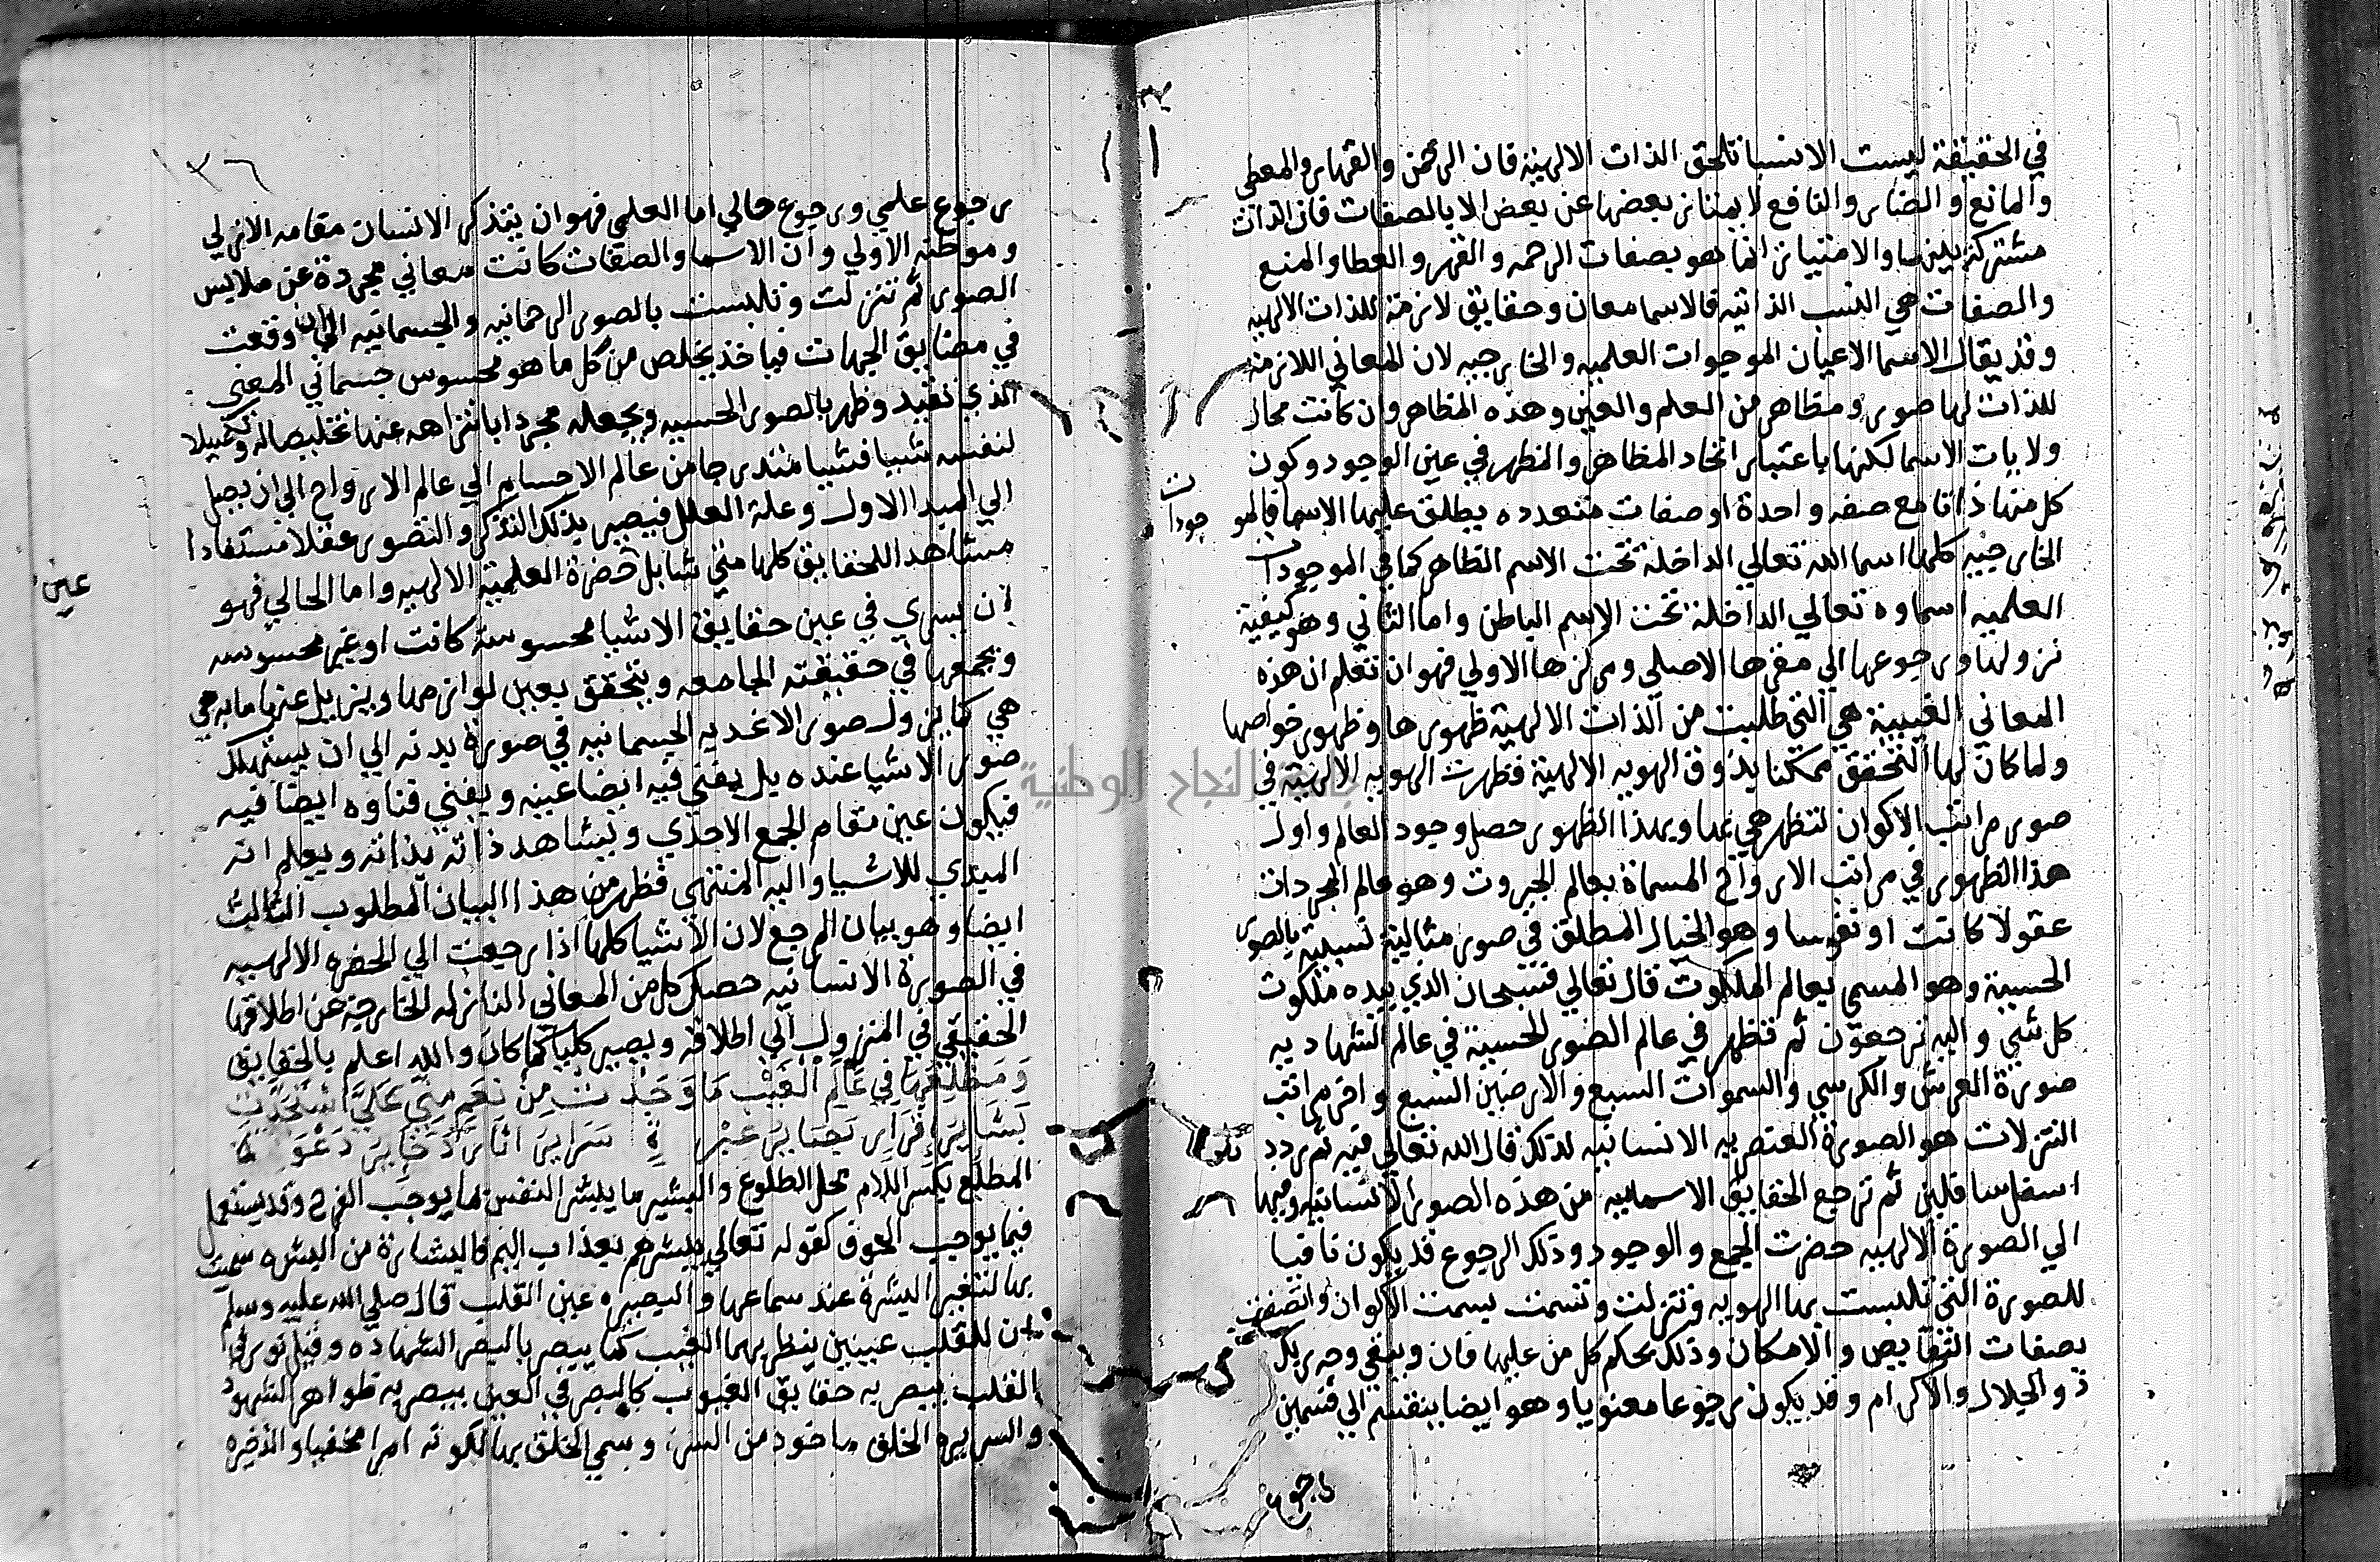 في الحقيقة ليست الا نسبا تلحق الذات الالهية فان الرحمن والقهار والمعطي
والمانع والضار والنافع لا يمتاز بعضها عن بعض الا بالصفات فان الذات
مشتركة بينها والامتياز انما هو بصفات الرحمه والقهر والعطا والمنع
والصفات هي النسب الذاتيه فالاسما معان وحقايق لازمة للذات الالهيه
وقد يقال الاسما الاعيان الموجوات العلميه والخارجيه لان المعاني اللازمة
للذات لها صور ومظاهر من العلم والعين وهذه المظاهر وان كانت محال
ولايات الاسما لكنها باعتبار اتحاد المظاهر والمظهر في عين الوجود وكون
كل منها ذاتا مع صفه واحدة او صفات متعدده يطلق عليها الاسما فالمو جودات
الخارجيه كلها اسما الله تعالي الداخلة تحت الاسم الظاهر كما في الموجودات
العلميه اسماوه تعالي الداخلة تحت الاسم الباطن واما الثاني وهو كيفية
نزولها ورجوعها الي مقرها الاصلي ومركزها الاولي فهو ان تعلم ان هذه
المعاني الغيبية هي التي طلبت من الذات الالهية ظهورها وظهور خواصها
ولما كان لها التحقق ممكنا بذوق الهويه الالهية فظهرت الهويه الالهية في
صور مراتب الاكوان لتظهر هي بها وبهذا الظهور حصل وجود العالم واول
هذا الظهور في مراتب الارواح المسماة بعالم الجبروت وهو عالم المجردات
عقولا كانت او نفوسا وهو الخيال المطلق في صور مثالية بالصور
الحسية وهو المسمي بعالم الملكوت قال تعالي فسبحان الذي بيده ملكوت
كل شي واليه ترجعون ثم تظهر في عالم الصور الحسية في عالم الشهاديه
صورة العرش والكرسي والسموات السبع والارضين السبع واخر مراتب
التنزلات هو الصورة العنصريه الانسانيه لذلك قال الله تعالي فيه ثم رددناه
اسفل سافلين ثم ترجع الحقايق الاسماييه من هذه الصور الانسانيه ومنها
الي الصورة الالهيه حضرت الجمع والوجود وذلك الرجوع قد يكون نافيا
للصورة التي تلبست بها الهويه وتنزلت وتسمت بسمت الاكوان واتصفت
بصفات النقايص والامكان وذلك بحكم كل من عليها فان ويبقي وجه ربك
ذو الجلال والاكرام وقد يكون رجوعا معنويا وهو ايضا ينقسم الي قسمين
رجوع
٣٦
رجوع علمي ورجوع حالي اما العلمي فهو ان يتذكر الانسان مقامه الازلي
وموطنه الاولي وان الاسما والصفات كانت معاني مجردة عن ملابس
الصور ثم تنزلت وتلبست بالصور الرحمانيه والجسمانيه الي ان وقعت
في مضايق الجهات فياخذ يخلص من كل ما هو محسوس جسماني المعني
الذي تقيد وظهر بالصور الحسيه ويجعله مجردا بانتزاهه عنها تخليصا له وتكميلا
لنفسه شيا فشيا متدرجا من عالم الاجسام الي عالم الارواح الي ان يصل
الي المبدا الاول وعلة العلل فيصير بذلك التذكر والتصور عقلا مستفادا
مشاهدا للحقايق كلها متي شا بل حضرة العلمية الالهيه واما الحالي فهو
عين
ان يسري في عين حقايق الاشيا محسوسة كانت او غير محسوسه
ويجمعها في حقيقته الجامعه ويتحقق بعين لوازمها ويزيل عنها ما به هي
هي كما يزول صور الاغديه الجسمانيه في صورة بدنه الي ان يستهلك
صور الاشيا عنده بل يفني فيه ايضا عينه ويفني فناوه ايضا فيه
فيكون عين مقام الجمع الاحدي ويشاهد ذاته بذاته ويعلم انه
المبدي للاشيا واليه المنتهي فظهر من هذا البيان المطلوب الثالث
ايضا وهو بيان المرجع لان الاشيا كلها اذا رجعت الي الحضره الالهيه
في الصورة الانسانيه حصل كل من المعاني النازله الخارجة عن اطلاقها
الحقيقي في المنزول الي اطلاقه ويصير كليا كما كان والله اعلم بالحقايق
وَمَطْلِعُهَا فِي عَالَمِ الْغَيْبِ مَا وَجَدْتُ مِنْ نِعَمٍ مِنِّي عَلَيَّ اسْتَجَدَّتِ
بَشَائِرُ إِقْرَارٍ بَصَائِرُ عِبْرَةٍ سَرَائِرُ آثَارٍ ذَخَائِرُ دَعْوَةِ
المطلع بكسر اللام محل الطلوع والبشير ما يبشر النفس بما يوجب الفرح وقد يستعمل
فيما يوجب الخوف كقوله تعالي فبشرهم بعذاب اليم فالبشارة من البشره سميت
بها لتغير البشرة عند سماعها والبصيره عين القلب قال صلي الله عليه وسلم
ان للقلب عينين ينظر بهما الغيب كما يبصر بالبصر الشهاده وقيل نور في
القلب يبصر به حقايق الغيوب كالبصر في العين يبصر به ظواهر الشهود
والسريره الخلق ماخوذ من السر وسمي الخلق بها لكونه امرا مخفيا والذخيره
جامعة النجاح الوطنية